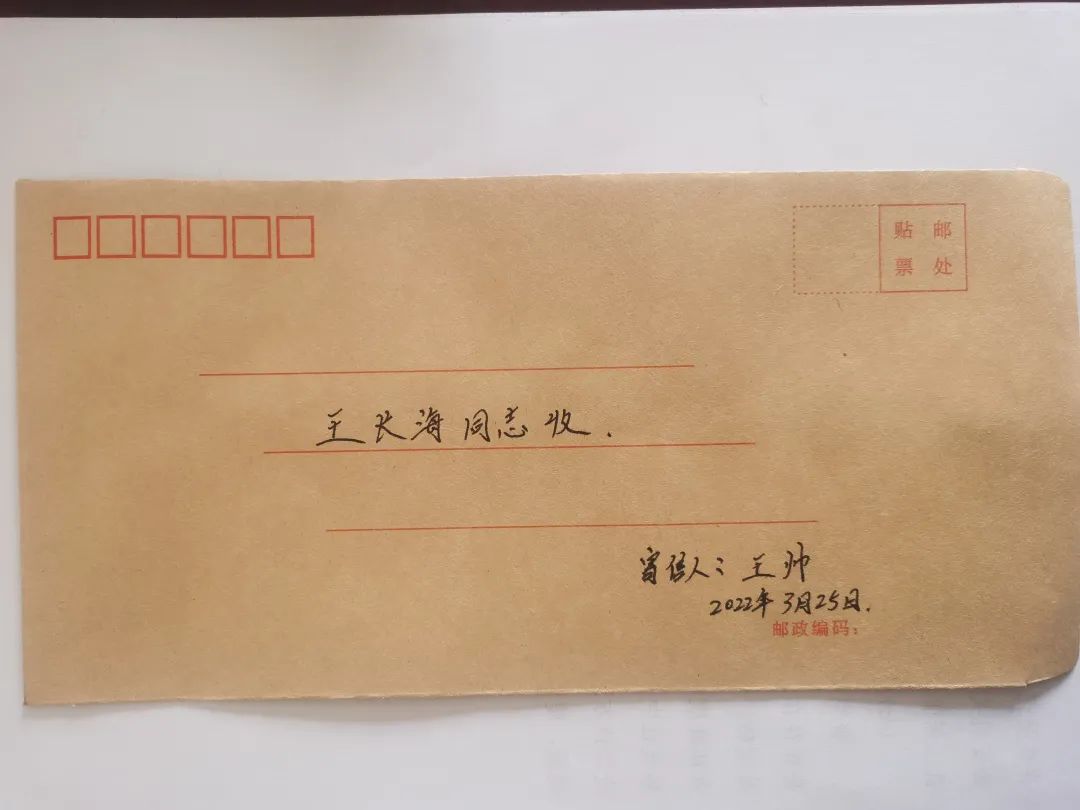 贴 邮
票 处
王长海同志收.
寄信人：王帅
2022年3月25日.
邮政编码：